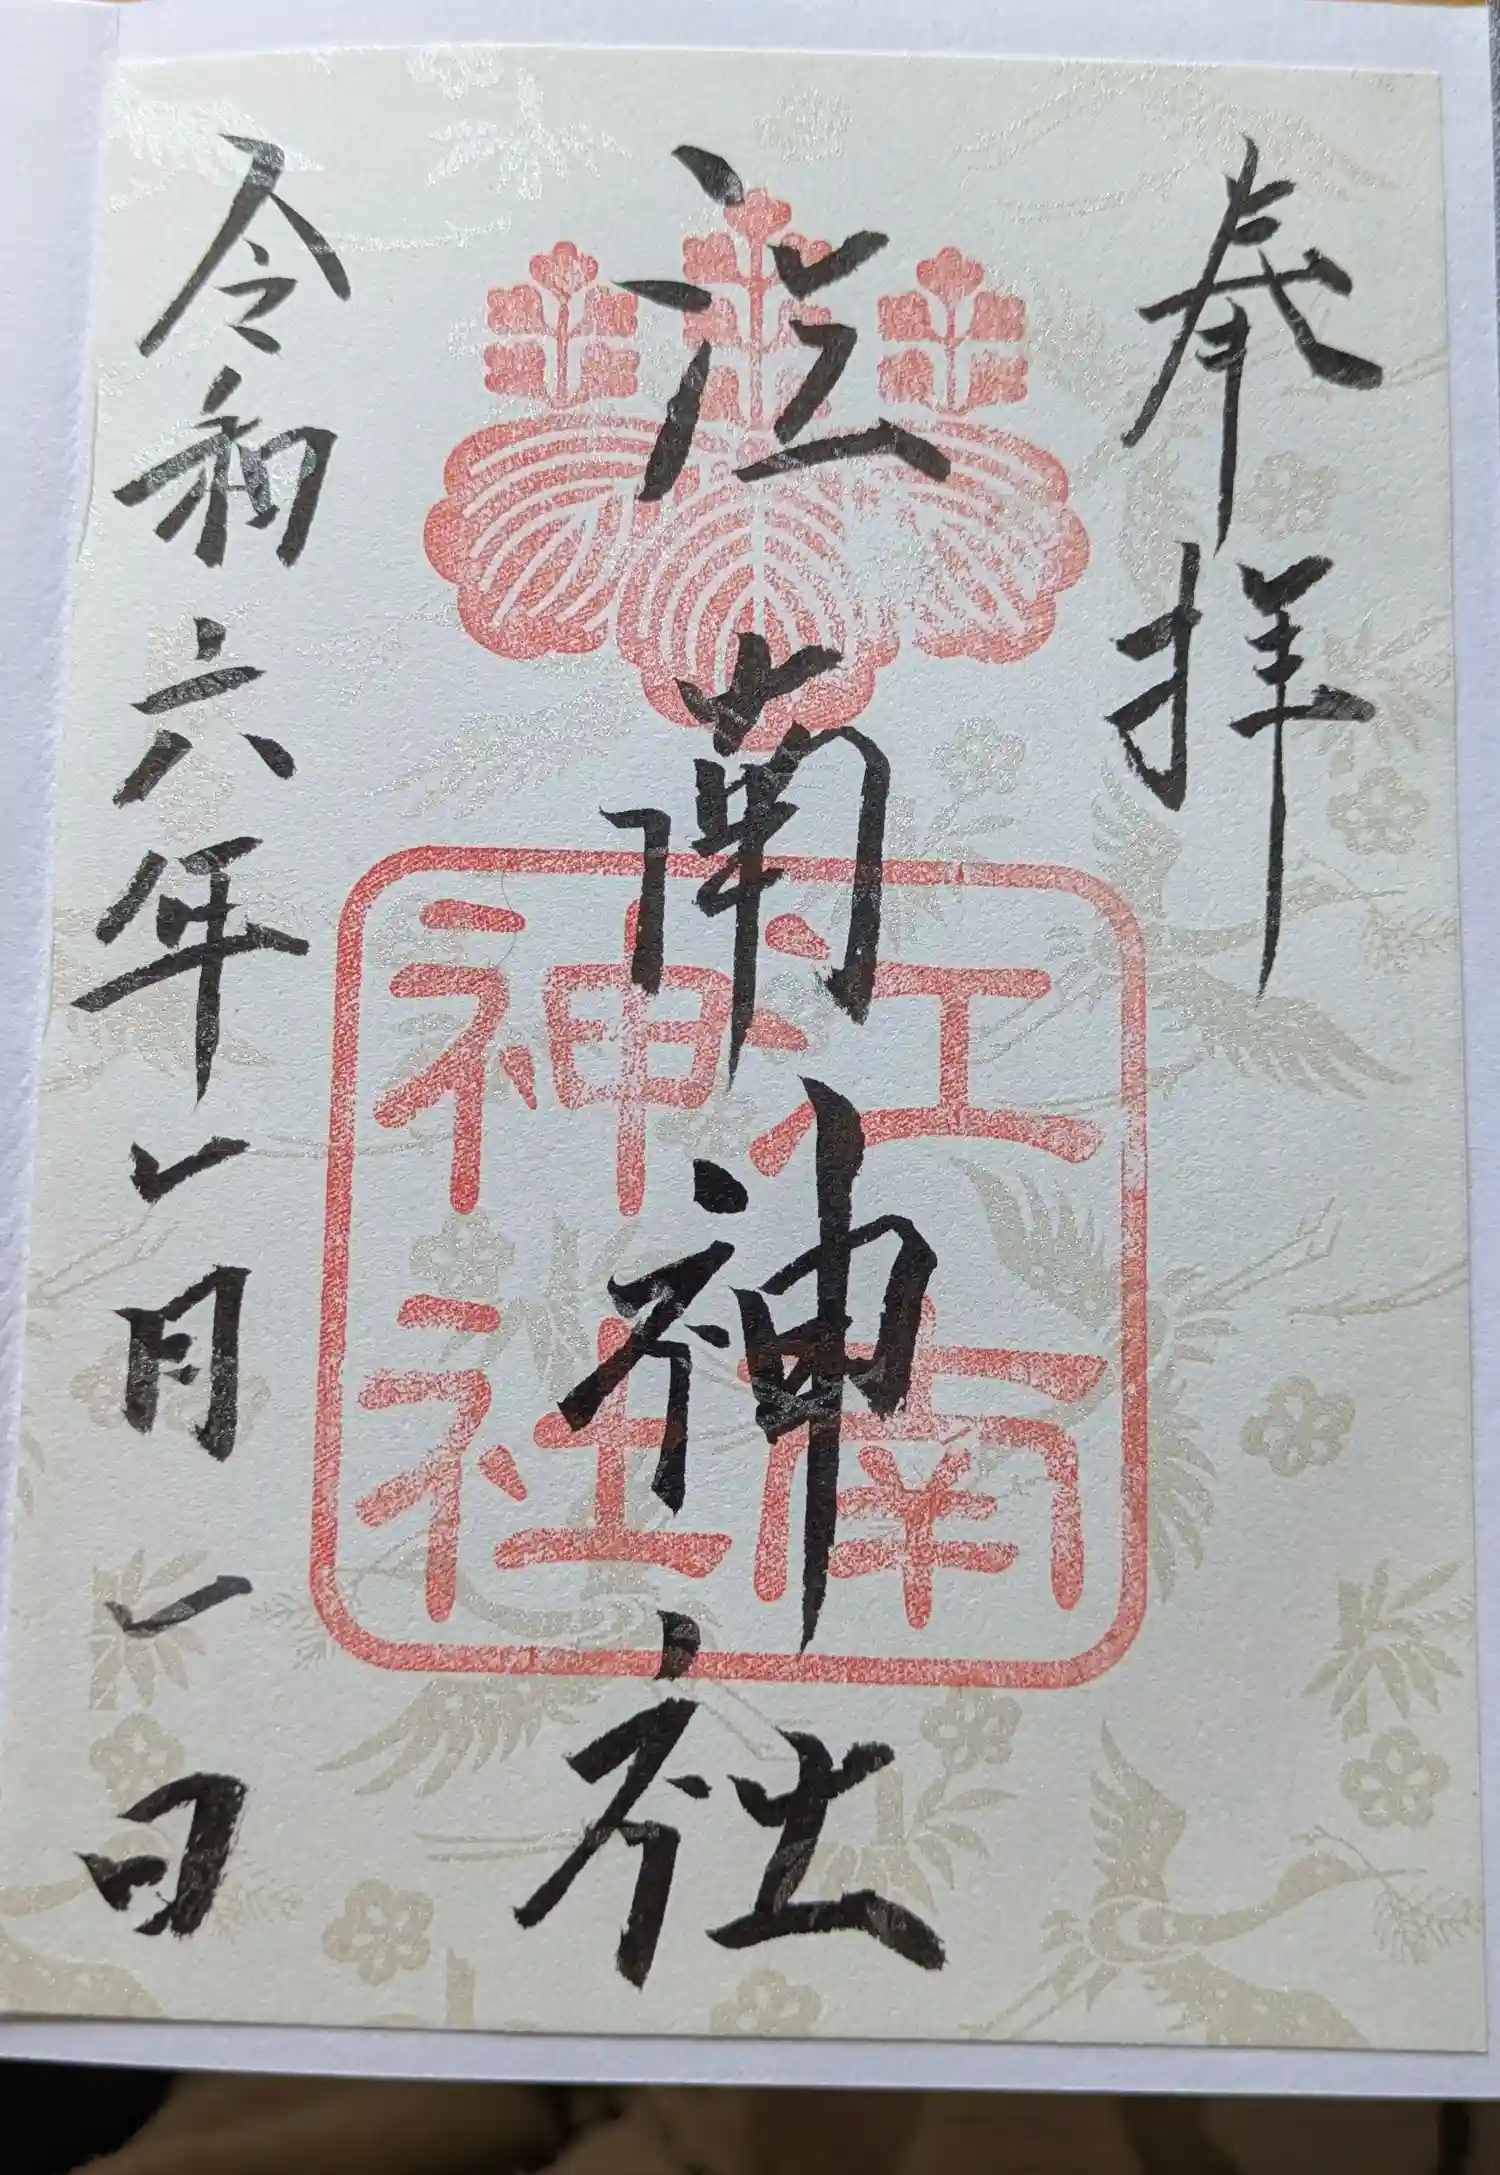 奉拝
江南神社
江南神社
令和六年一月一日